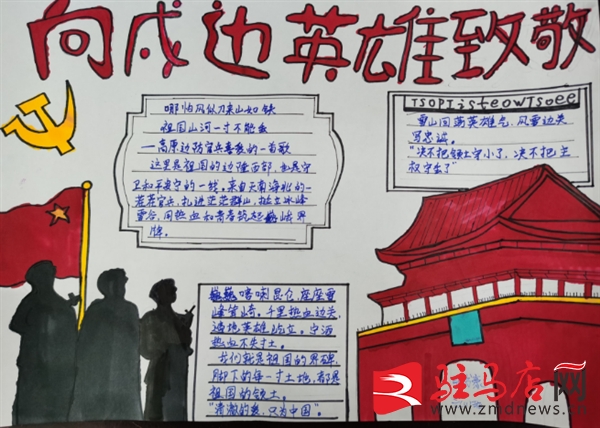 向戍边英雄致敬
哪怕风似刀来山如铁
祖国山河一寸不能丢
一高原边防官兵喜爱的一首歌
这里是祖国的边陲西部,也是守
卫和平安宁的一线,来自天南海北的一
茬茬官兵,扎进茫茫群山,挺立冰峰
雪谷,用热血和青春筑起巍峨界
碑。
雪山回荡英雄气,风雪边关
写忠诚。
"决不把领土守小了,决不把主
权守丢了"
巍巍喀喇昆仑,座座雪
峰耸峙。千里热血边关,
遍地英雄屹立。宁洒
热血不失寸土
我们就是祖国的界碑
脚下的每一寸土地,都是
祖国的领土。
"清澈的爱,只为中国"。
驻马店网
www.zmdnews.cn